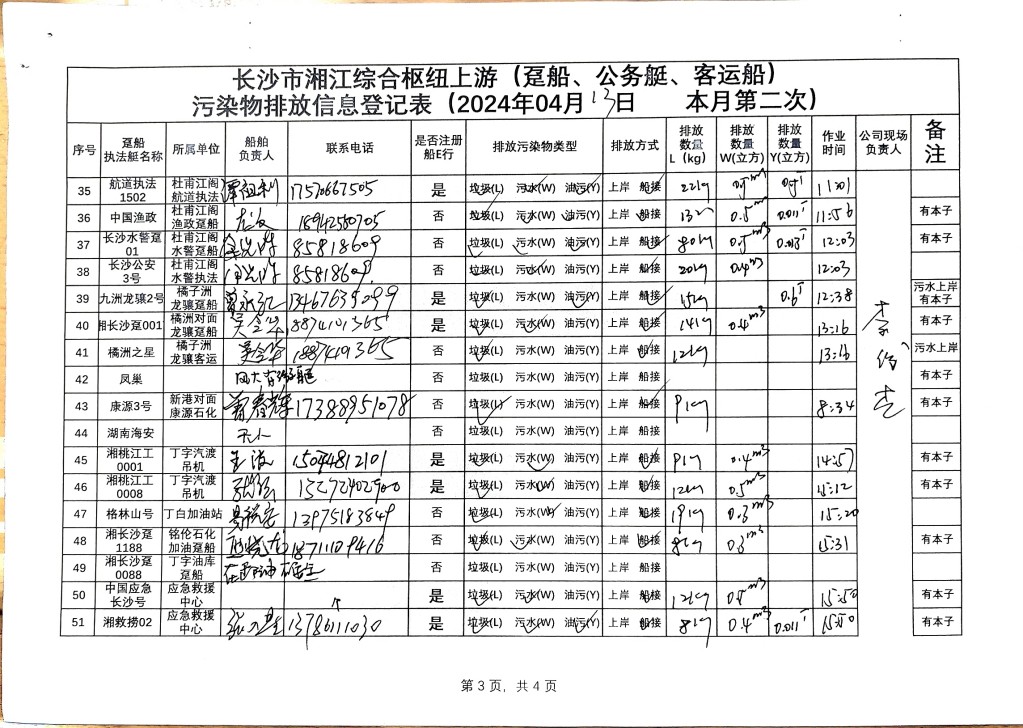 长沙市湘江综合枢纽上游（趸船、公务艇、客运船）
污染物排放信息登记表（2024年04月13日 本月第二次）
序号 趸船执法艇名称 所属单位 船舶负责人 联系电话 是否注册船E行 排放污染物类型 排放方式 排放数量L（kg） 排放数量W(立方) 排放数量Y(立方) 作业时间 公司现场负责人 备注
35 航道执法1502 杜甫江阁航道执法 17570667505 是 垃圾(L) 污水(W) 油污(Y) 上岸 船接 22kg
36 中国渔政 杜甫江阁渔政趸船 18942580705 否 垃圾(L) 污水(W) 油污(Y) 上岸 船接 11:56 有本子
37 长沙水警趸01 杜甫江阁水警趸船 85818609 否 垃圾(L) 污水(W) 油污(Y) 上岸 船接 80kg 12:03 有本子
38 长沙公安3号 杜甫江阁水警执法 85818609 否 垃圾(L) 污水(W) 油污(Y) 上岸 船接 20kg 0.4m³ 12:03
39 九洲龙骧2号 橘子洲龙骧趸船 13467639099 是 垃圾(L) 污水(W) 油污(Y) 上岸 船接 15kg 12:38 污水上岸有本子
40 湘长沙趸001 橘洲对面龙骧趸船 是 垃圾(L) 污水(W) 油污(Y) 上岸 船接 14kg 0.4m³ 13:16 有本子
41 橘洲之星 橘子洲龙骧客运 是 垃圾(L) 污水(W) 油污(Y) 上岸 船接 12kg 13:16 污水上岸
42 凤巢 否 垃圾(L) 污水(W) 油污(Y) 上岸 船接 有本子
43 康源3号 新港对面康源石化 17388951078 否 垃圾(L) 污水(W) 油污(Y) 上岸 船接 9kg 8:34 有本子
44 湖南海安 无人 否 垃圾(L) 污水(W) 油污(Y) 上岸 船接
45 湘桃江工0001 丁字汽渡吊机 15074812101 是 垃圾(L) 污水(W) 油污(Y) 上岸 船接 9kg 0.4m³ 14:57 有本子
46 湘桃江工0008 丁字汽渡吊机 是 垃圾(L) 污水(W) 油污(Y) 上岸 船接 12kg 0.5m³ 15:12 有本子
47 格林山号 丁白加油站 13975183849 是 垃圾(L) 污水(W) 油污(Y) 上岸 船接 19kg 0.3m³ 15:20 有本子
48 湘长沙趸1188 铭伦石化加油趸船 18711109416 是 垃圾(L) 污水(W) 油污(Y) 上岸 船接 8kg 0.3m³ 15:31 有本子
49 湘长沙趸0088 丁字油库趸船 否 垃圾(L) 污水(W) 油污(Y) 上岸 船接
50 中国应急长沙号 应急救援中心 是 垃圾(L) 污水(W) 油污(Y) 上岸 船接 12kg 15:50 有本子
51 湘救捞02 应急救援中心 13786111030 是 垃圾(L) 污水(W) 油污(Y) 上岸 船接 8kg 0.4m³ 15:50 有本子
第 3 页，共 4 页